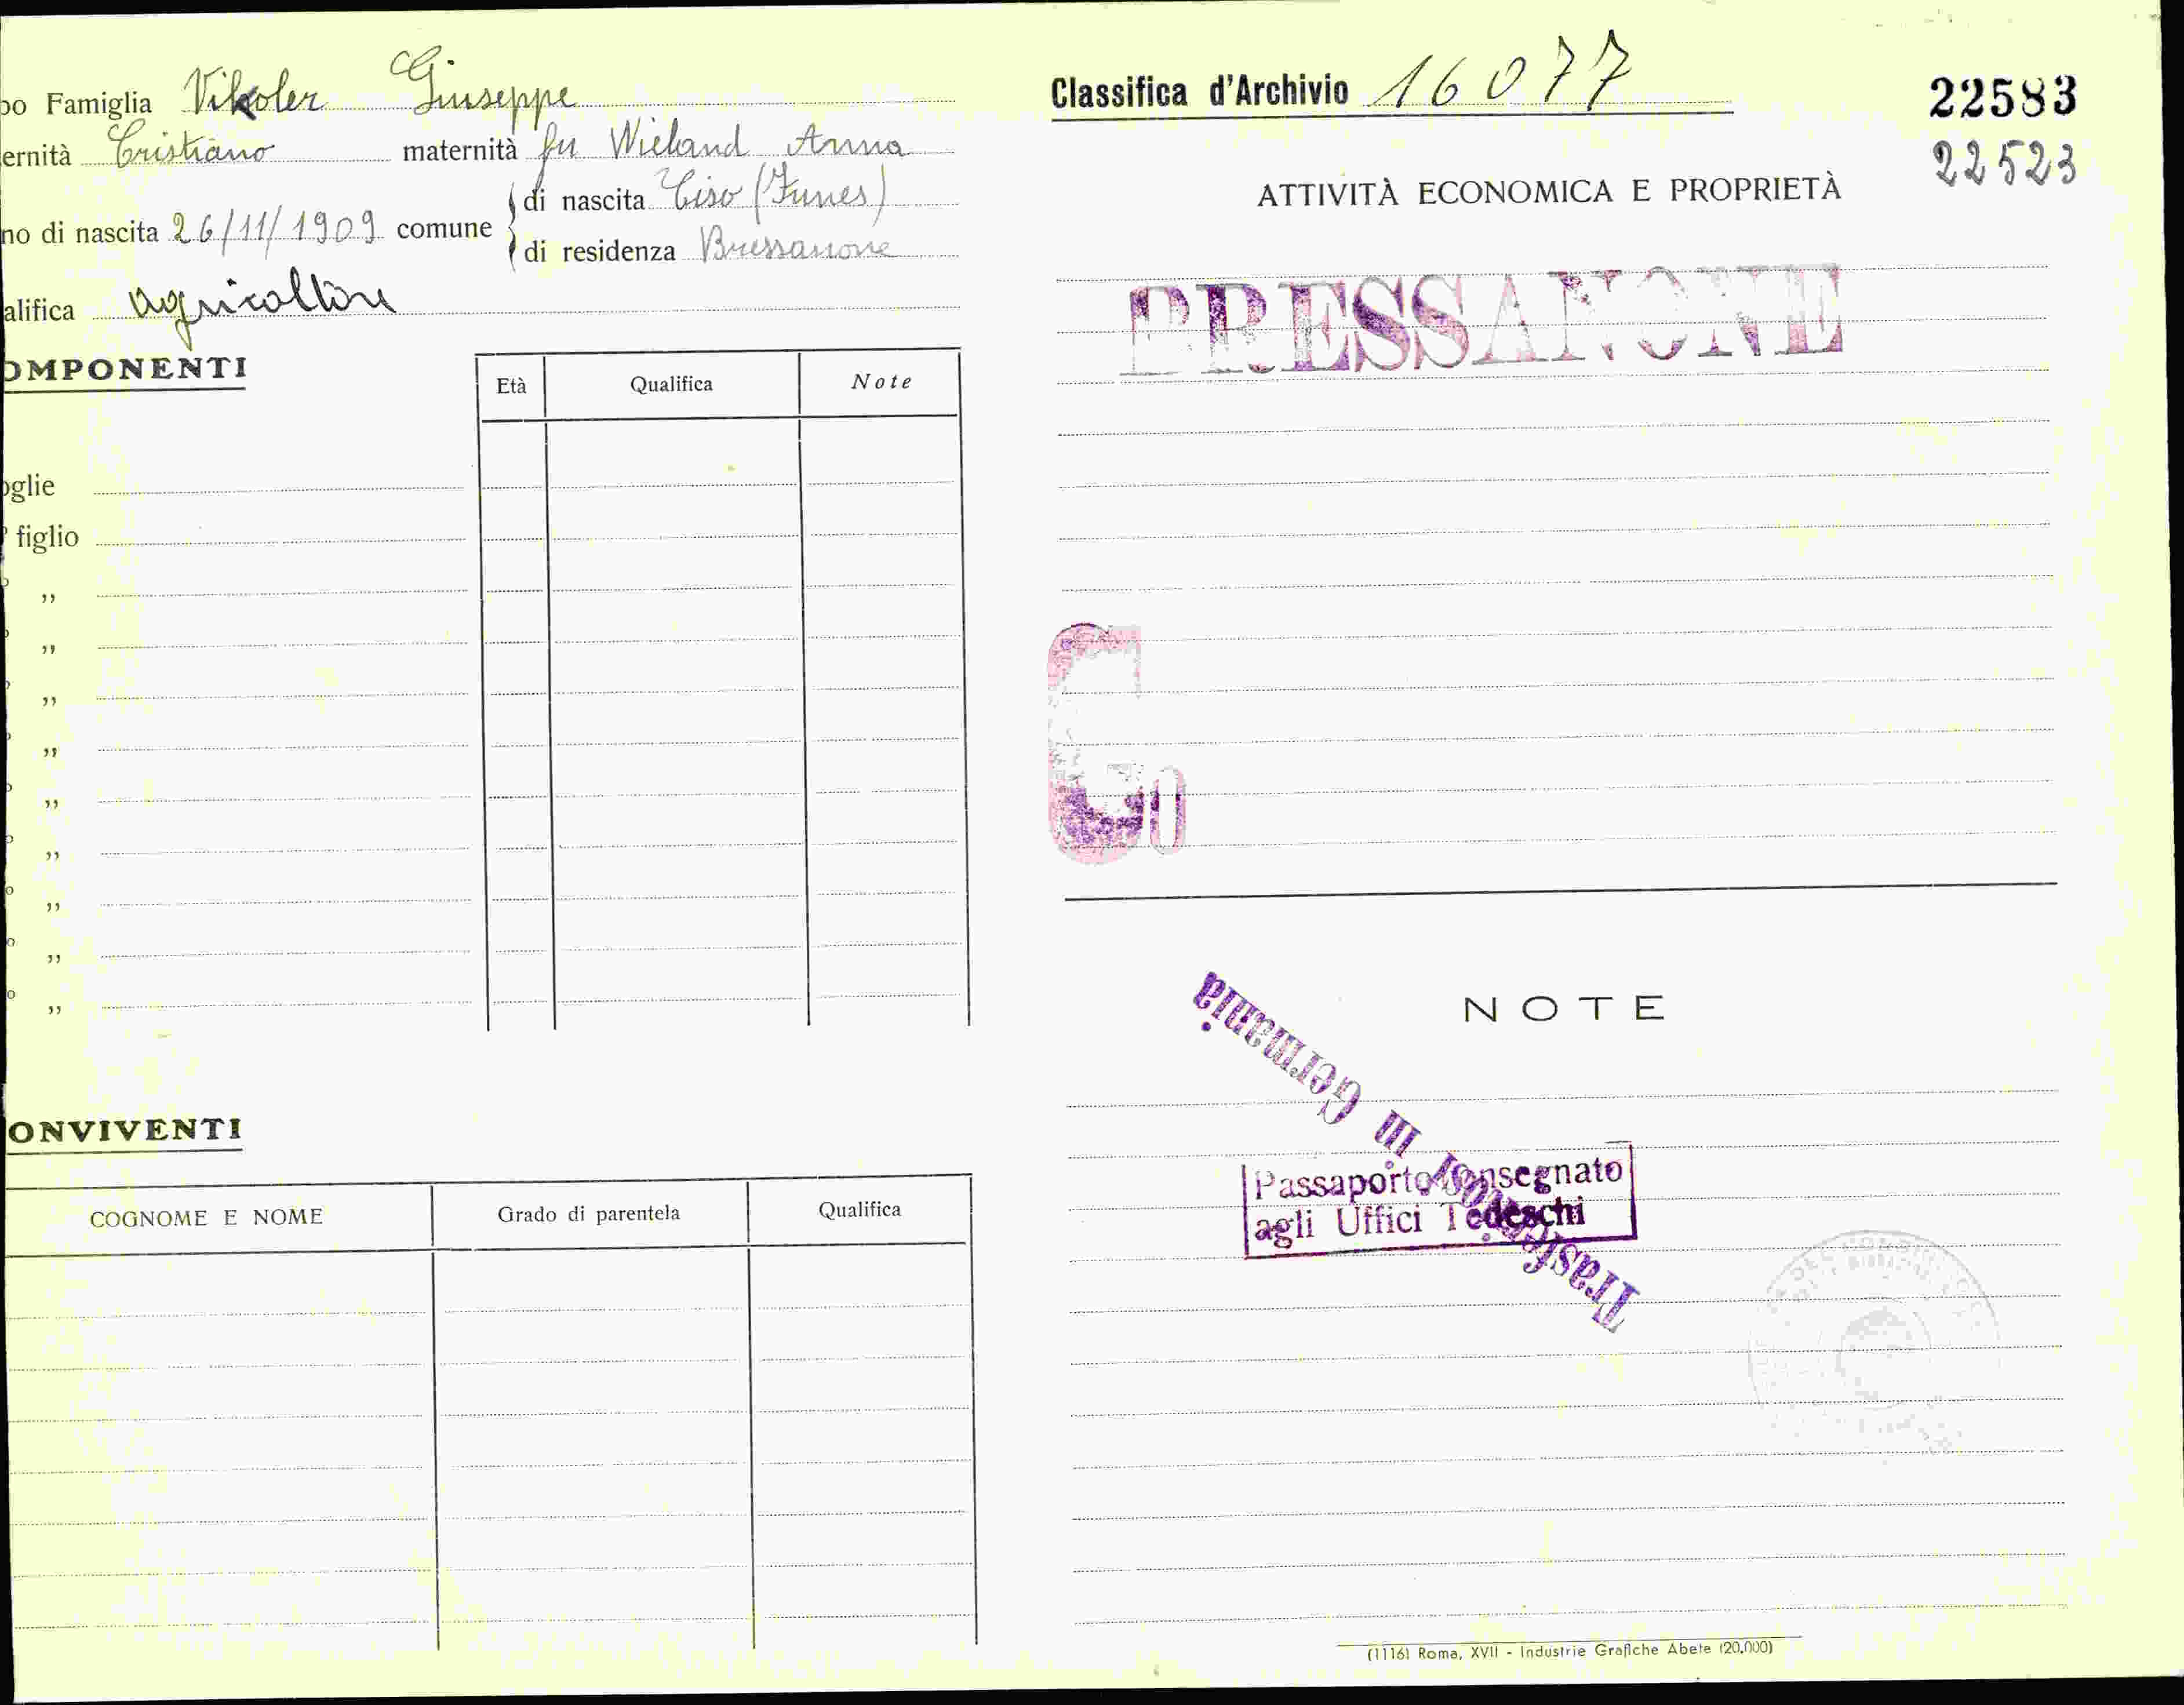 po Famiglia Vikoler Giuseppe
ernità Cristiano maternità fu Wieland Anna
no di nascita 26/11/1909 comune di nascita Tiso (Funes)
di residenza Bressanone
alifica agricoltore
OMPONENTI
Età Qualifica Note
oglie
figlio
"
"
"
"
"
"
"
"
"
ONVIVENTI
COGNOME E NOME Grado di parentela Qualifica
Classifica d'Archivio 16077
22583
22523
ATTIVITÀ ECONOMICA E PROPRIETÀ
BRESSANONE
NOTE
Trasferitosi in Germania
Passaporto consegnato
agli Uffici Tedeschi
(1116) Roma, XVII - Industrie Grafiche Abete (20.000)